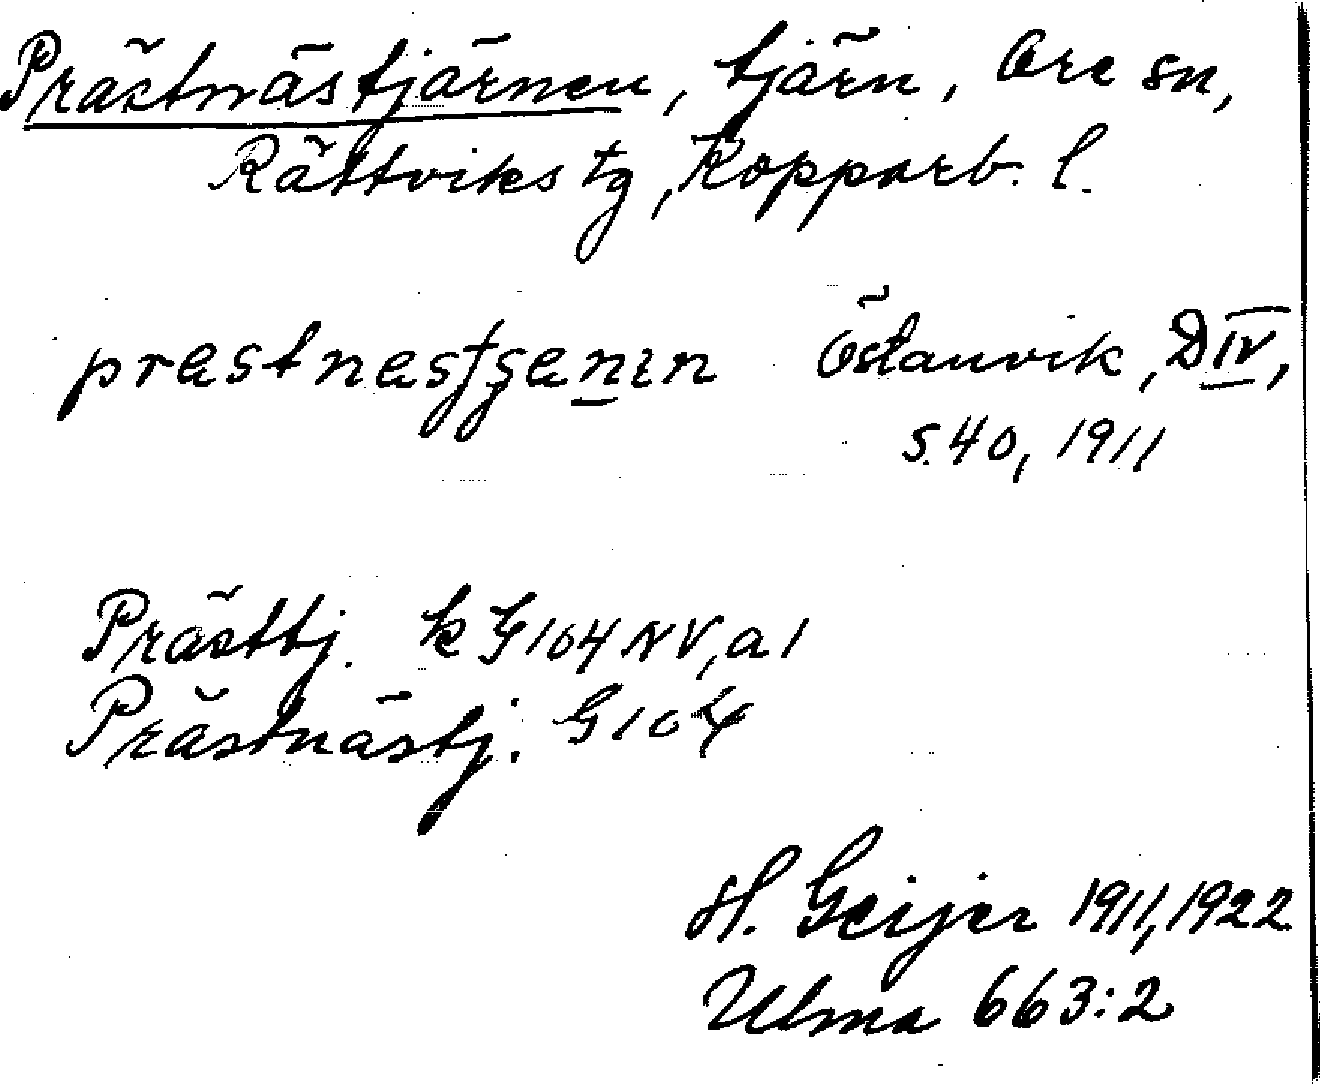 Prästnästjärnen, tjärn, Ore sn,
Rättviks tg, Kopparb. l.
prestnestʃenın Östanvik, D IV,
s. 40, 1911
Prästtj. k G 104 NV, a 1
Prästnästj. G 104
H. Geijer 1911, 1922
Ulma 663:2